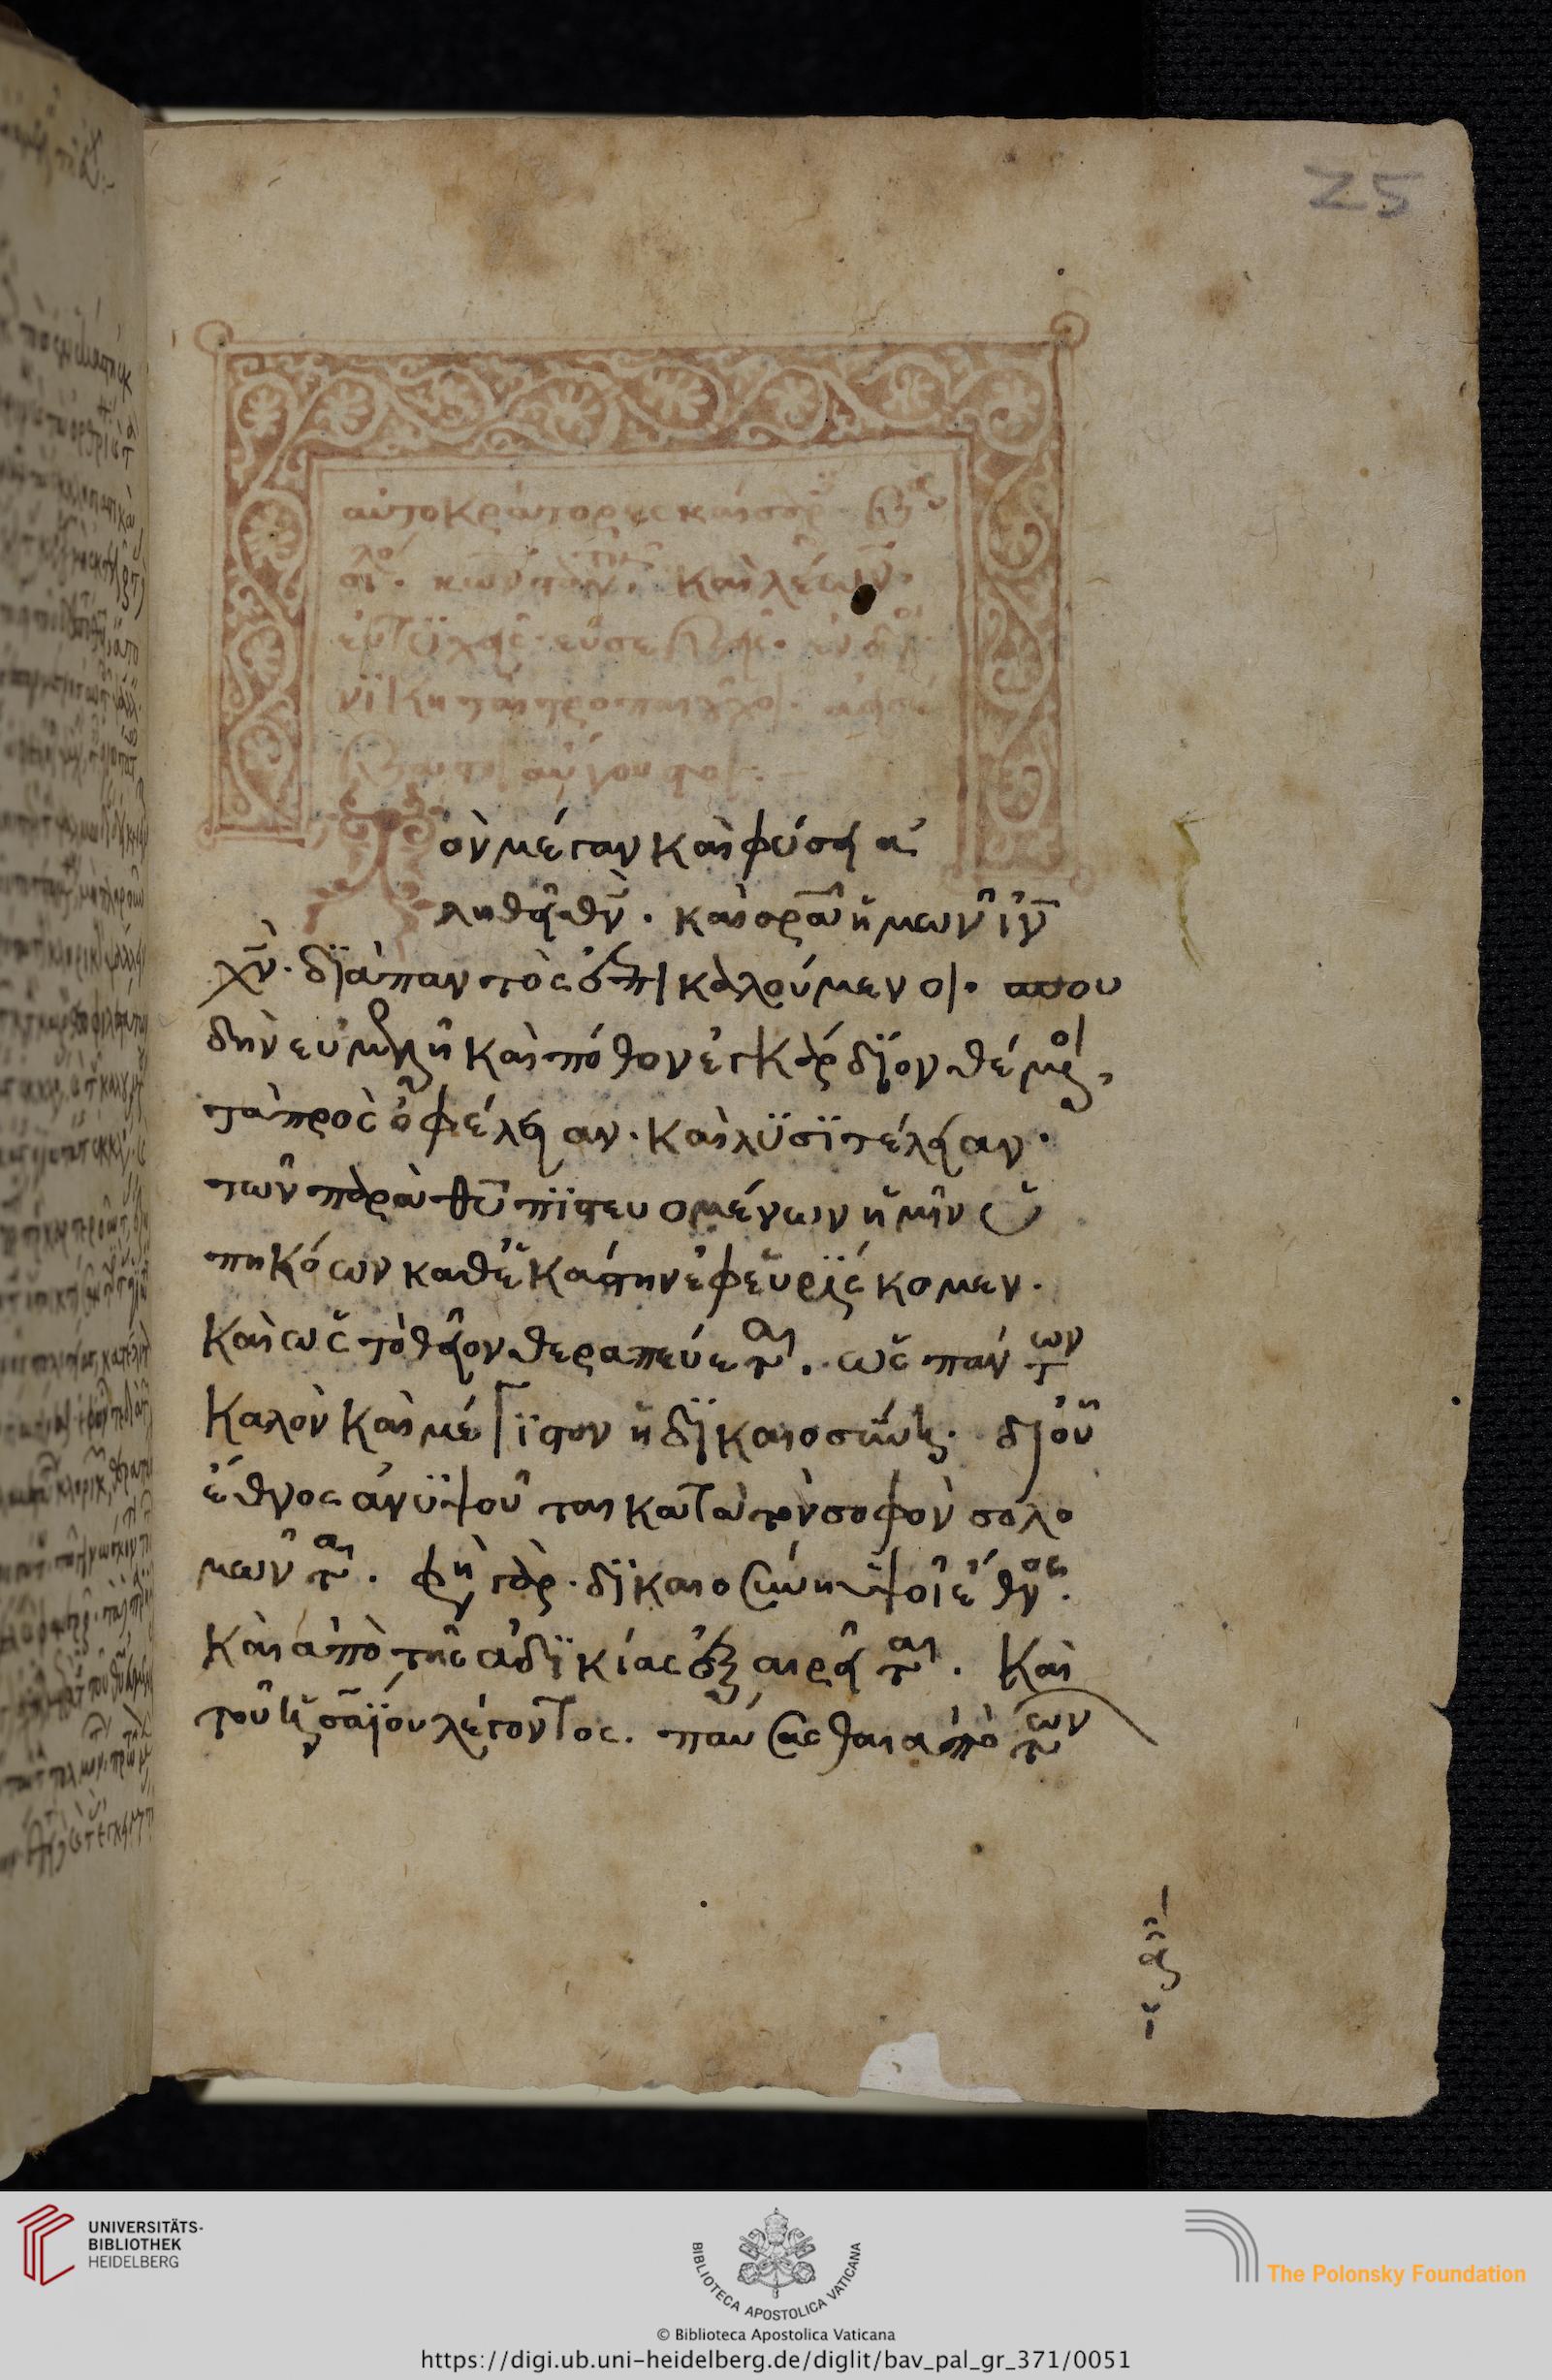 25
αὐτοκράτορες καίσαρ
καὶ λέων
εὐτυχεῖς· εὐσεβεῖς·
νϊκηταὶ τροπαιοῦχοι· ἀεισέ
βαστοι αὔγουστοι
Τὸν μέγαν καὶ φύσει ἀ
ληθῆ θν̅· καὶ σρ̅α ἡμῶν ιν̅
χν̅· δϊαπαντὸς ἐπικαλούμενοι· σπου
δὴν εὐμενῆ καὶ πόθον ἐγκάρδϊον θέμενοι,
τὰ πρὸς ὠφέλειαν· καὶ λϋσϊτέλειαν·
τῶν παρὰ θυ̅ πϊστευομένων ἡμῖν ὑ
πηκόων καθεκάστην ἐφευρϊσκομεν·
Καὶ ὡς τὸ θεῖον θεραπεύεται· ὡς πάντων
καλὸν καὶ μέγϊστον ἡ δϊκαιοσύνη· δι' οὗ
ἔθνος ἀνϋψοῦται κατὰ τὸν σοφὸν σολο
μῶντα· φησὶ γὰρ· δϊκαιοσύνη ὑψοῖ ἔθνος·
καὶ ἀπὸ τῆς ἀδϊκίας ἐξαιρεῖται· καὶ
τοῦ ἡσαΐου λέγοντος· παύσασθαι ἀπὸ τῶν
UNIVERSITÄTS-
BIBLIOTHEK
HEIDELBERG
BIBLIOTECA APOSTOLICA VATICANA
The Polonsky Foundation
© Biblioteca Apostolica Vaticana
https://digi.ub.uni-heidelberg.de/diglit/bav_pal_gr_371/0051